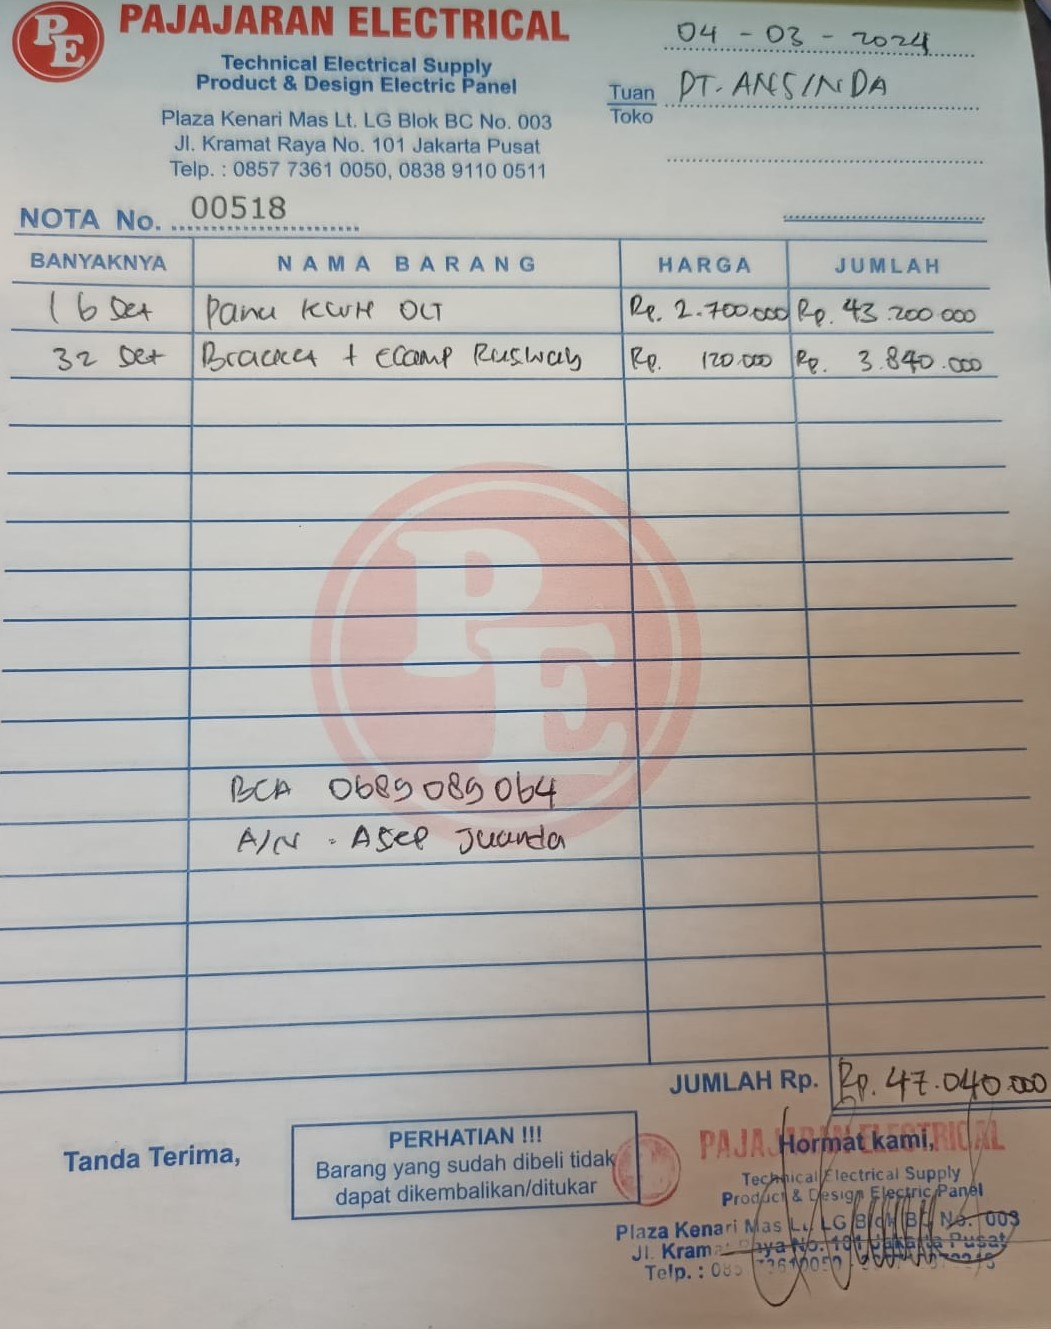 PE
PAJAJARAN ELECTRICAL
Technical Electrical Supply
Product & Design Electric Panel
Plaza Kenari Mas Lt. LG Blok BC No. 003
Jl. Kramat Raya No. 101 Jakarta Pusat
Telp. : 0857 7361 0050, 0838 9110 0511
04 - 03 - 2024
Tuan PT. ANSINDA
Toko
NOTA No. 00518
BANYAKNYA NAMA BARANG HARGA JUMLAH
16 Set Panel KWH OCT Rp. 2.700.000 Rp. 43.200.000
32 Set Bracket + Clamp Rusway Rp. 120.000 Rp. 3.840.000
PE
BCA 0689089064
A/N . Asep Juanda
JUMLAH Rp. Rp. 47.040.000
Tanda Terima,
PERHATIAN !!!
Barang yang sudah dibeli tidak
dapat dikembalikan/ditukar
Hormat kami,
PAJAJARAN ELECTRICAL
Technical Electrical Supply
Product & Design Electric Panel
Plaza Kenari Mas Lt. LG Blok BC No. 003
Jl. Kramat Raya No. 101 Jakarta Pusat
Telp. :